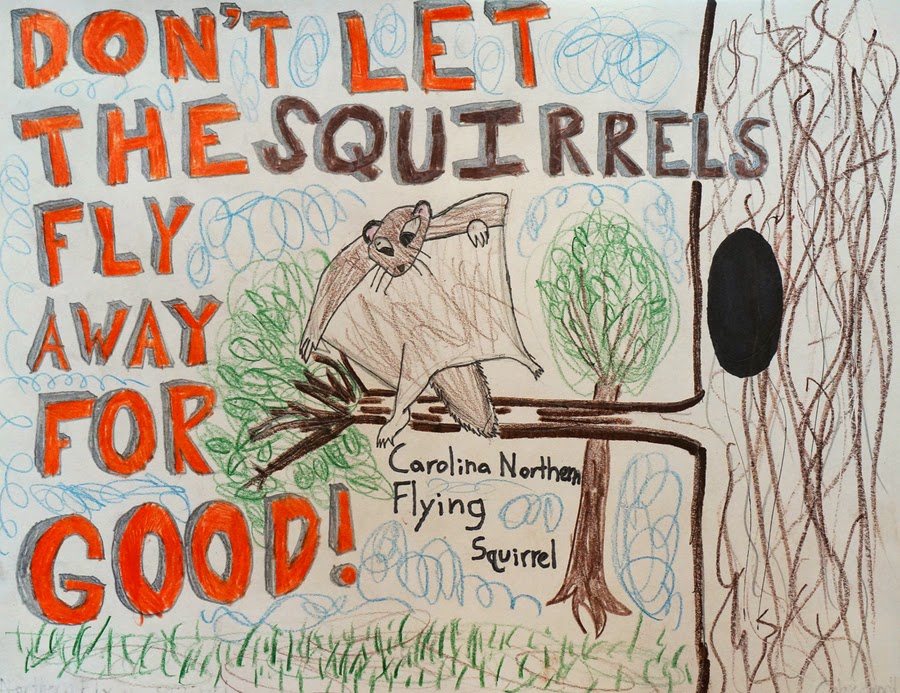 DON'T LET
THE SQUIRRELS
FLY
AWAY
FOR
GOOD!
Carolina Northern
Flying
Squirrel